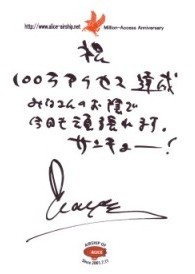 http://www.alice-airship.net Million-Access Anniversary
祝
100万アクセス達成
みなさんのお陰で
今日も頑張れます。
サンキュー!
AIRSHIP OF
ALICE
Since 2001.7.11